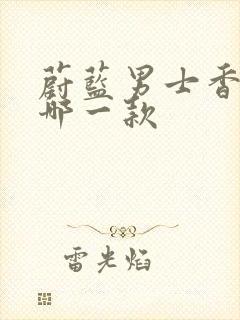 蔚藍男士香
哪一款
雷光焰